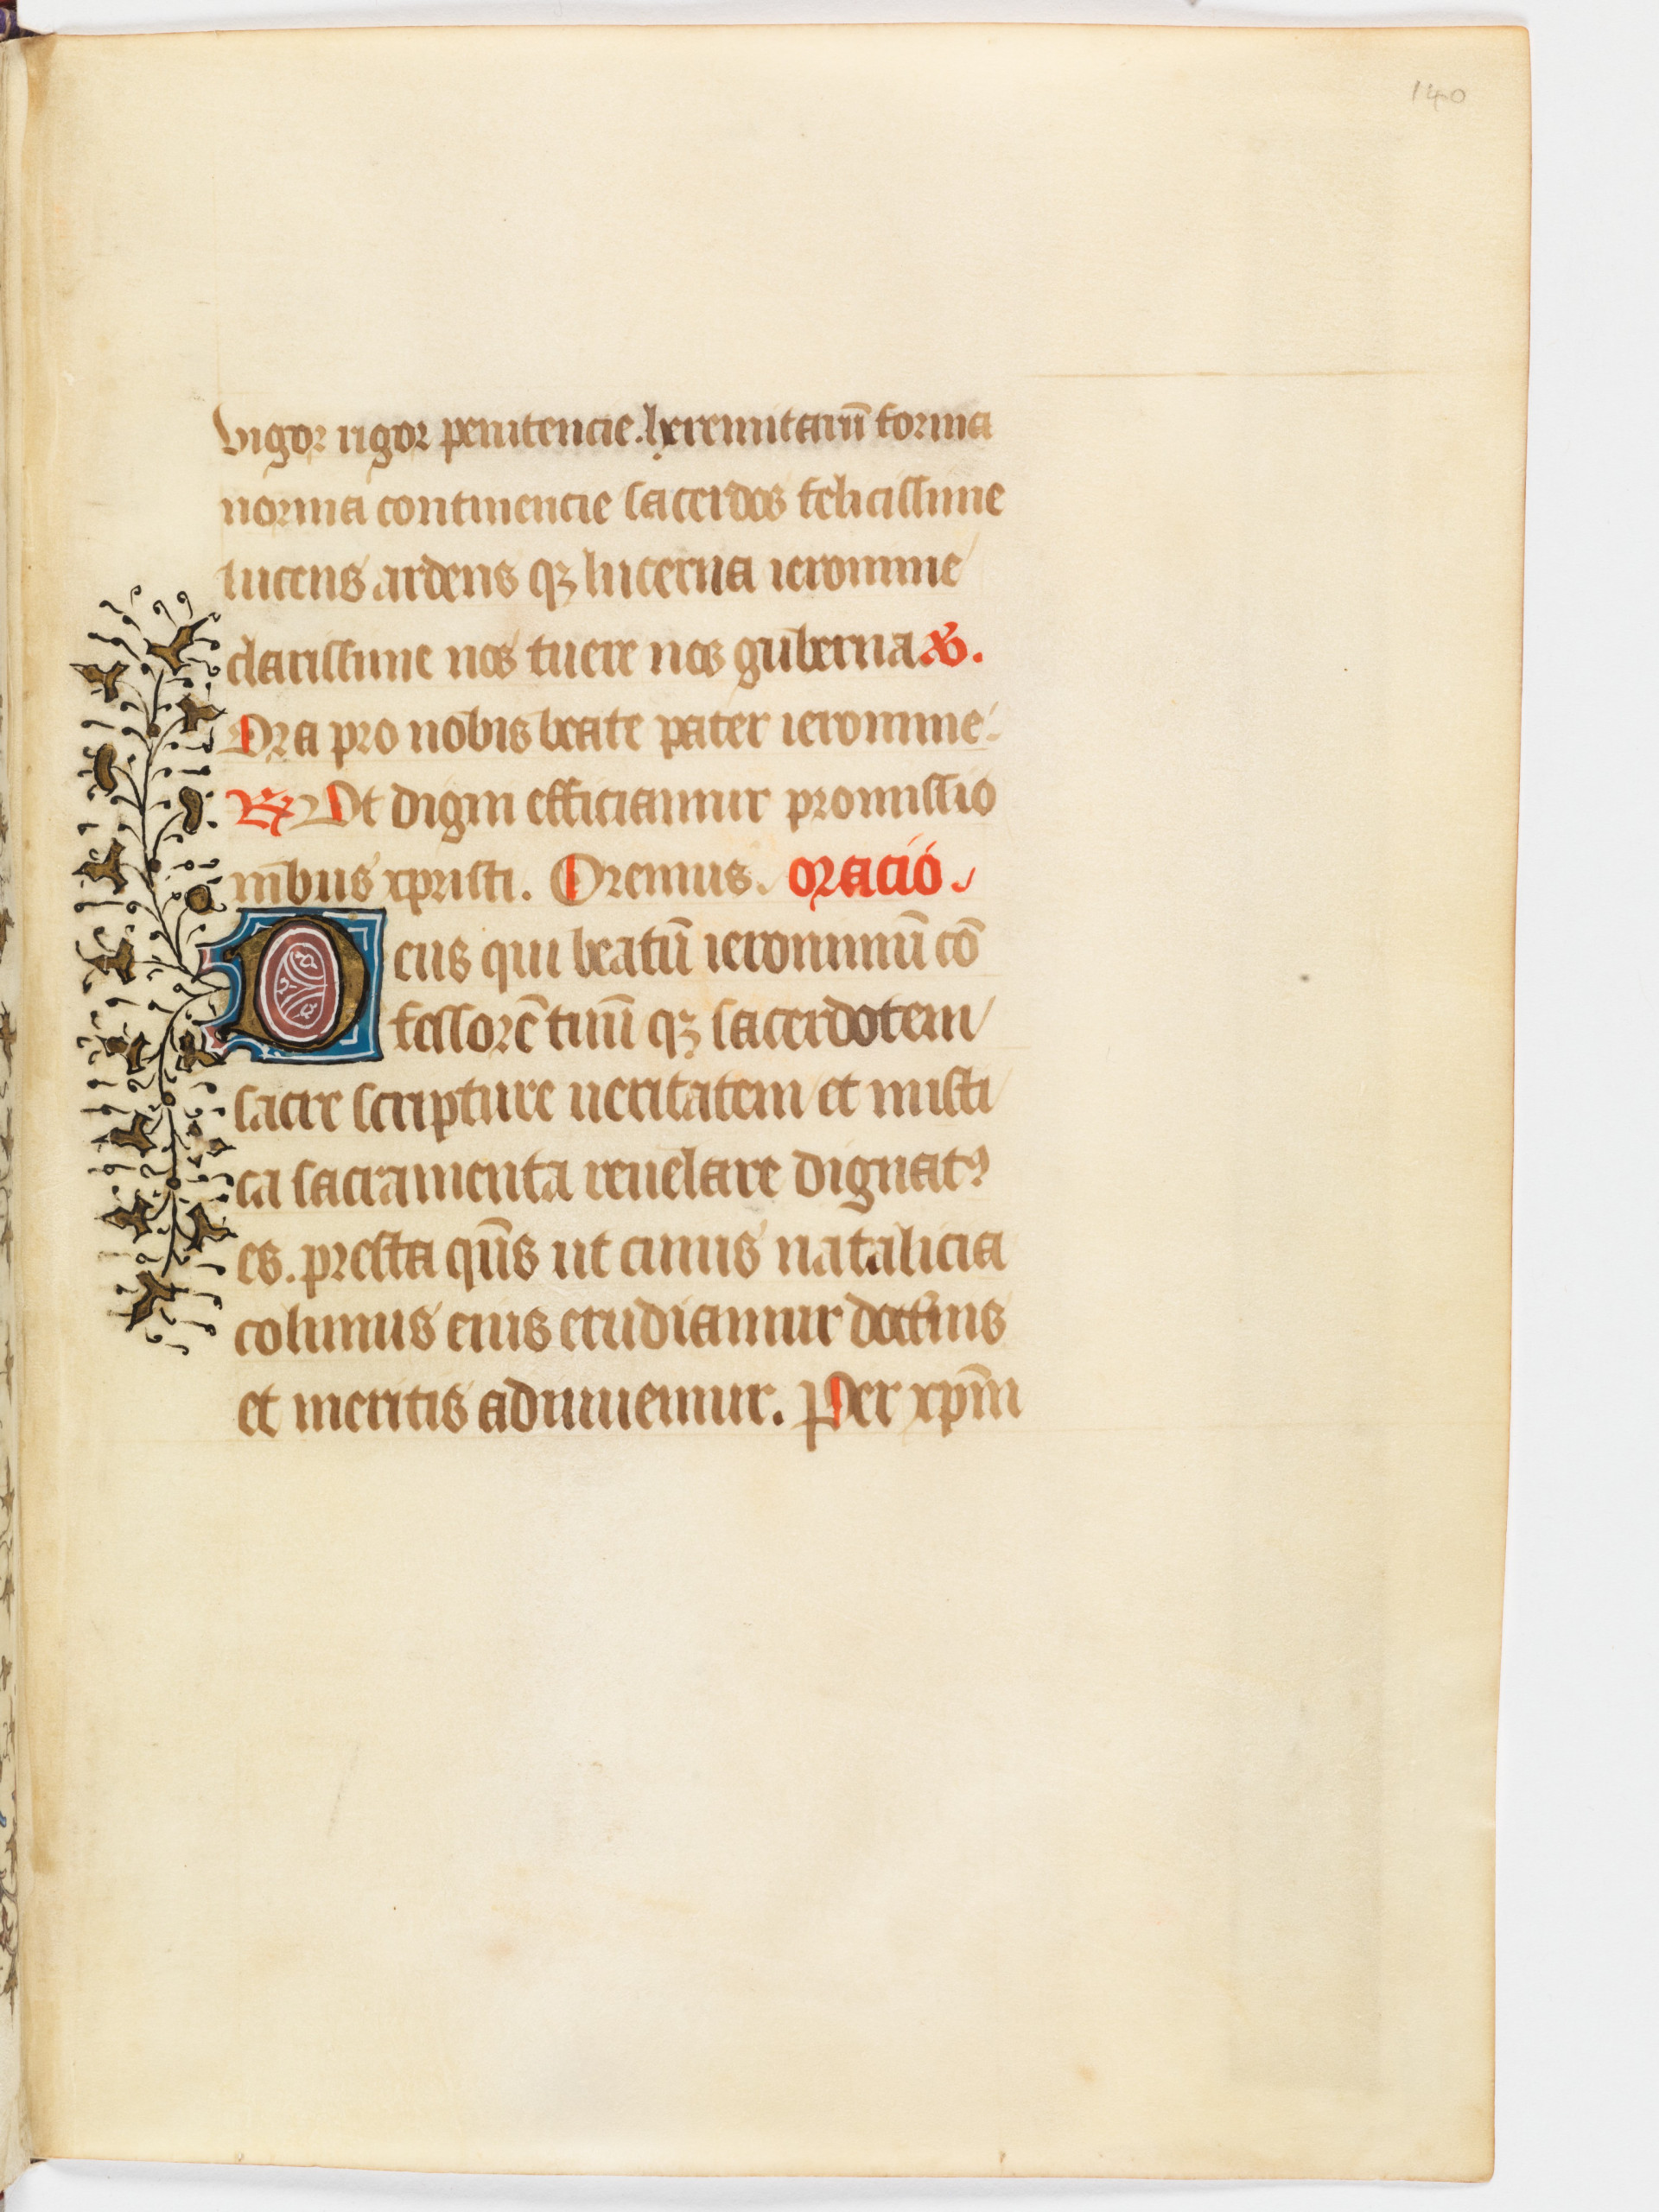 140
vigor rigor penitencie. heremitarũ forma
norma continencie sacerdos felicissime
lucens ardens qꝫ lucerna ieronime
clarissime nos tuere nos guberna. ℣.
Ora pro nobis beate pater ieronime.
℟ Ut digni efficiamur promissio
nibus xpristi. Oremus. oracio.
Deus qui beatũ ieronimũ cõ
fessorẽ tuũ qꝫ sacerdotem
sacre scripture ueritatem et misti
ca sacramenta reuelare dignatꝰ
es. presta qũs ut cuius natalicia
colimus eius erudiamur doctĩis
et meritis adiuuemur. Per xp̃m